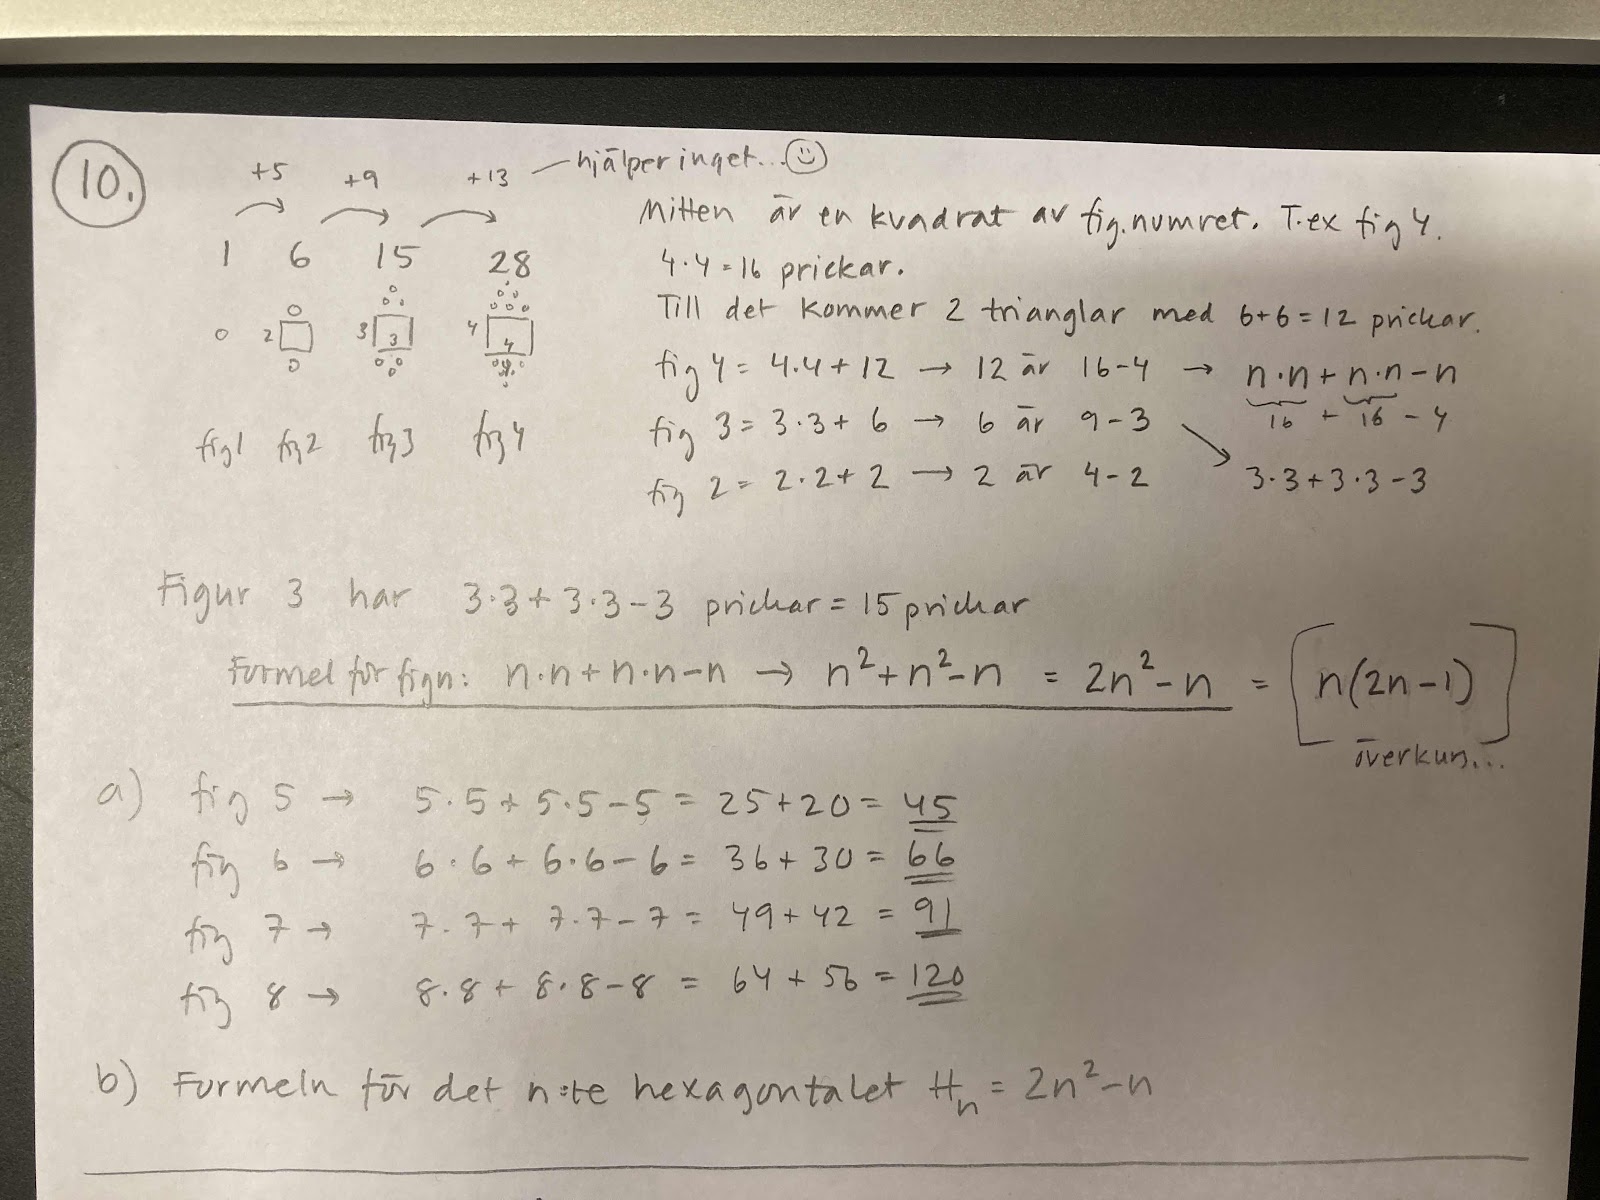 10.
+5 +9 +13 — hjälper inget...
1 6 15 28
2 3 3 4 4
fig1 fig2 fig3 fig4
Mitten är en kvadrat av fig.numret. T.ex fig 4.
4·4=16 prickar.
Till det kommer 2 trianglar med 6+6=12 prickar.
fig 4 = 4·4+12 → 12 är 16-4 → n·n+n·n-n
16 + 16 - 4
fig 3 = 3·3+6 → 6 är 9-3
fig 2 = 2·2+2 → 2 är 4-2 3·3+3·3-3
Figur 3 har 3·3+3·3-3 prickar = 15 prickar
Formel för fig n: n·n+n·n-n → n²+n²-n = 2n²-n = [n(2n-1)]
överkurs...
a) fig 5 → 5·5+5·5-5 = 25+20 = 45
fig 6 → 6·6+6·6-6 = 36+30 = 66
fig 7 → 7·7+7·7-7 = 49+42 = 91
fig 8 → 8·8+8·8-8 = 64+56 = 120
b) Formeln för det n:te hexagontalet Hn = 2n²-n